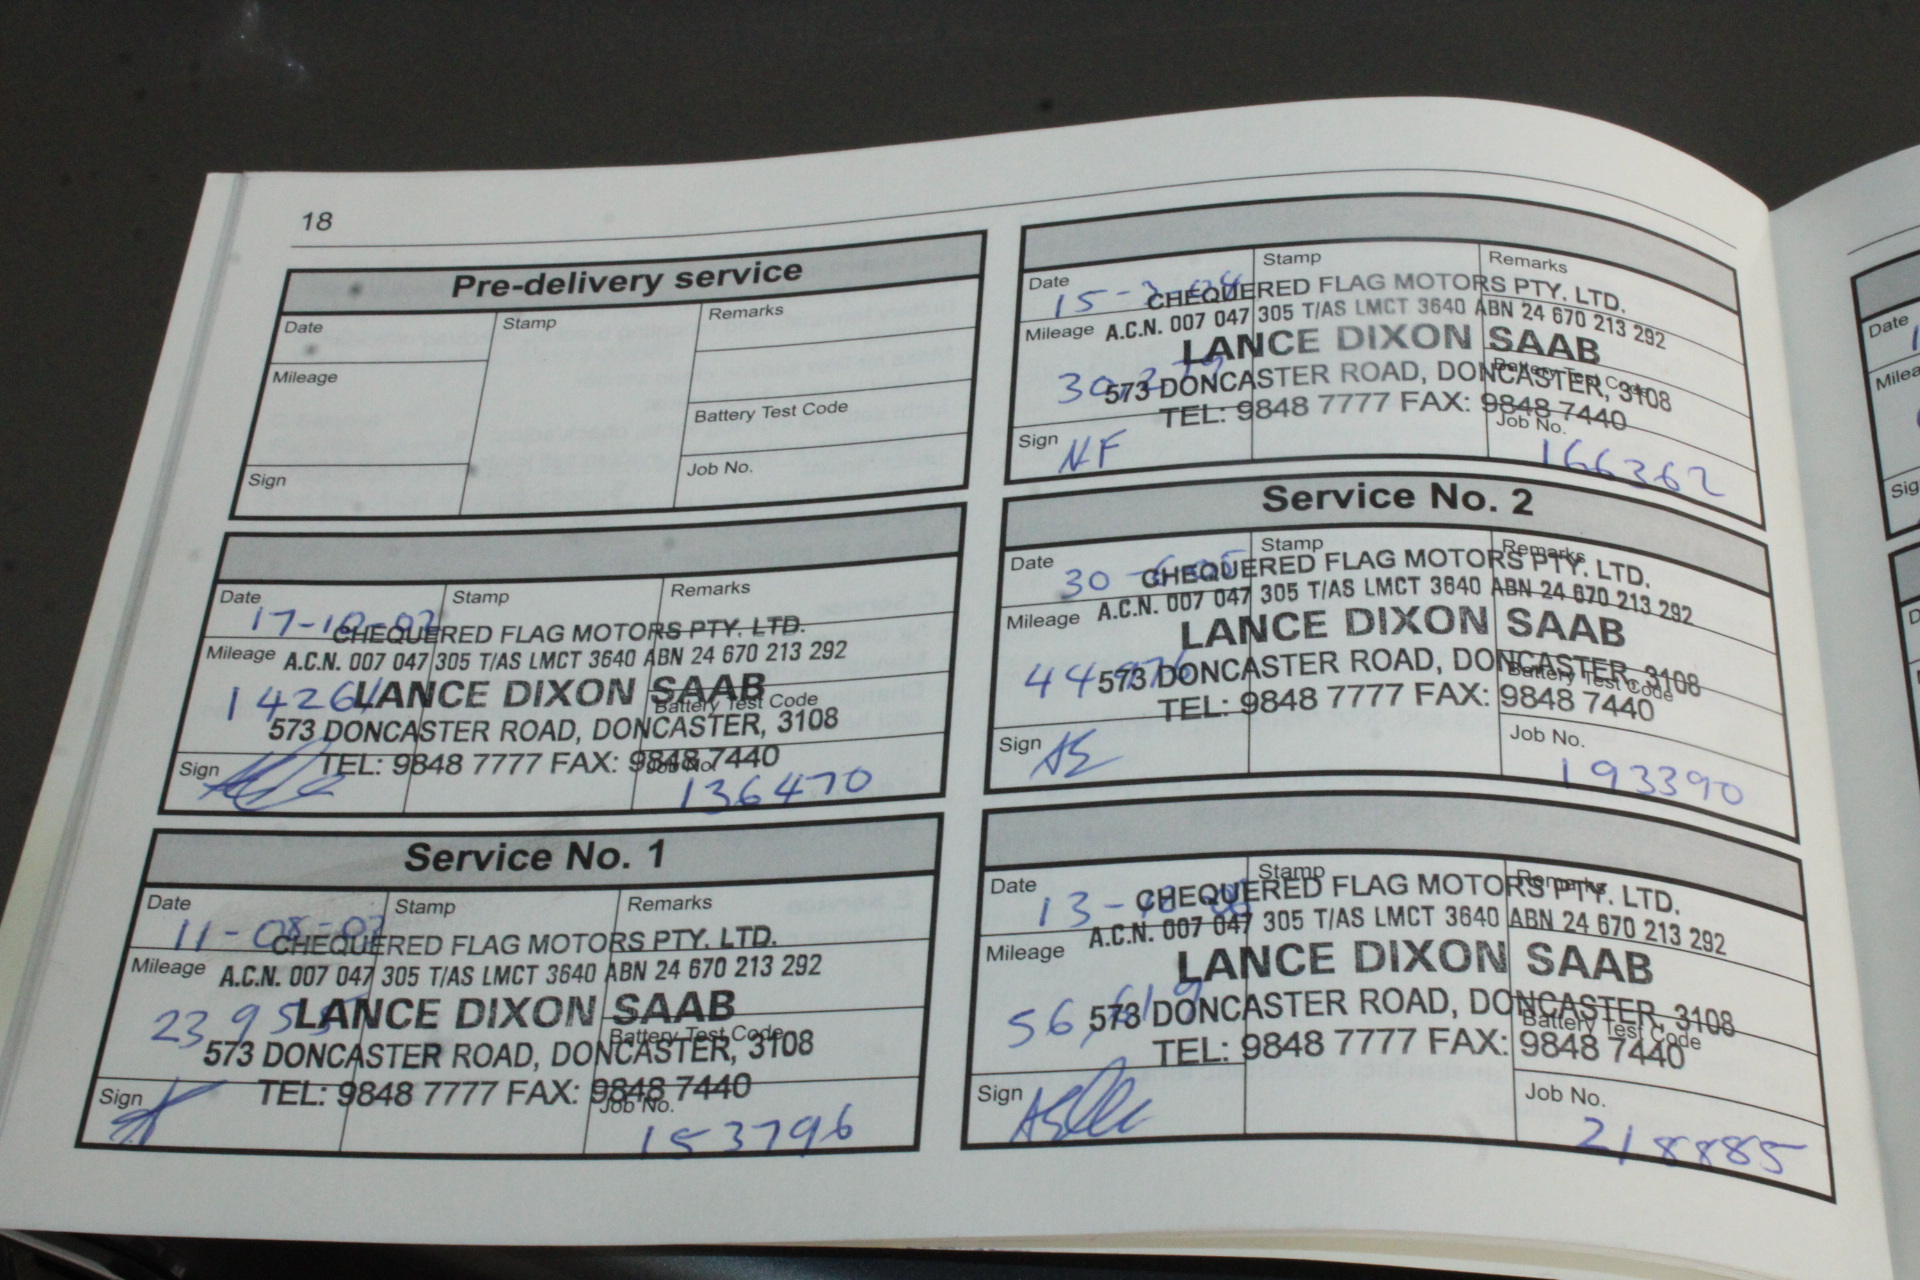 18
Pre-delivery service
Date
Stamp
Remarks
Mileage
Battery Test Code
Sign
Job No.
Date
Stamp
Remarks
17-10-02
CHEQUERED FLAG MOTORS PTY. LTD.
Mileage
A.C.N. 007 047 305 T/AS LMCT 3640 ABN 24 670 213 292
14261
LANCE DIXON SAAB
Battery Test Code
573 DONCASTER ROAD, DONCASTER, 3108
Sign
TEL: 9848 7777 FAX: 9848 7440
Job No.
136470
Service No. 1
Date
Stamp
Remarks
11-08-03
CHEQUERED FLAG MOTORS PTY. LTD.
Mileage
A.C.N. 007 047 305 T/AS LMCT 3640 ABN 24 670 213 292
LANCE DIXON SAAB
23955
Battery Test Code
573 DONCASTER ROAD, DONCASTER, 3108
Sign
TEL: 9848 7777 FAX: 9848 7440
Job No.
153796
Date
Stamp
Remarks
CHEQUERED FLAG MOTORS PTY. LTD.
Mileage
A.C.N. 007 047 305 T/AS LMCT 3640 ABN 24 670 213 292
LANCE DIXON SAAB
Battery Test Code
30,279
573 DONCASTER ROAD, DONCASTER, 3108
TEL: 9848 7777 FAX: 9848 7440
Sign
NF
Job No.
166362
Service No. 2
Date
Stamp
Remarks
CHEQUERED FLAG MOTORS PTY. LTD.
Mileage
A.C.N. 007 047 305 T/AS LMCT 3640 ABN 24 670 213 292
LANCE DIXON SAAB
44976
573 DONCASTER ROAD, DONCASTER, 3108
Battery Test Code
TEL: 9848 7777 FAX: 9848 7440
Sign
Job No.
193390
Date
Stamp
Remarks
CHEQUERED FLAG MOTORS PTY. LTD.
Mileage
A.C.N. 007 047 305 T/AS LMCT 3640 ABN 24 670 213 292
LANCE DIXON SAAB
56,619
573 DONCASTER ROAD, DONCASTER, 3108
Battery Test Code
TEL: 9848 7777 FAX: 9848 7440
Sign
Job No.
218885
Date